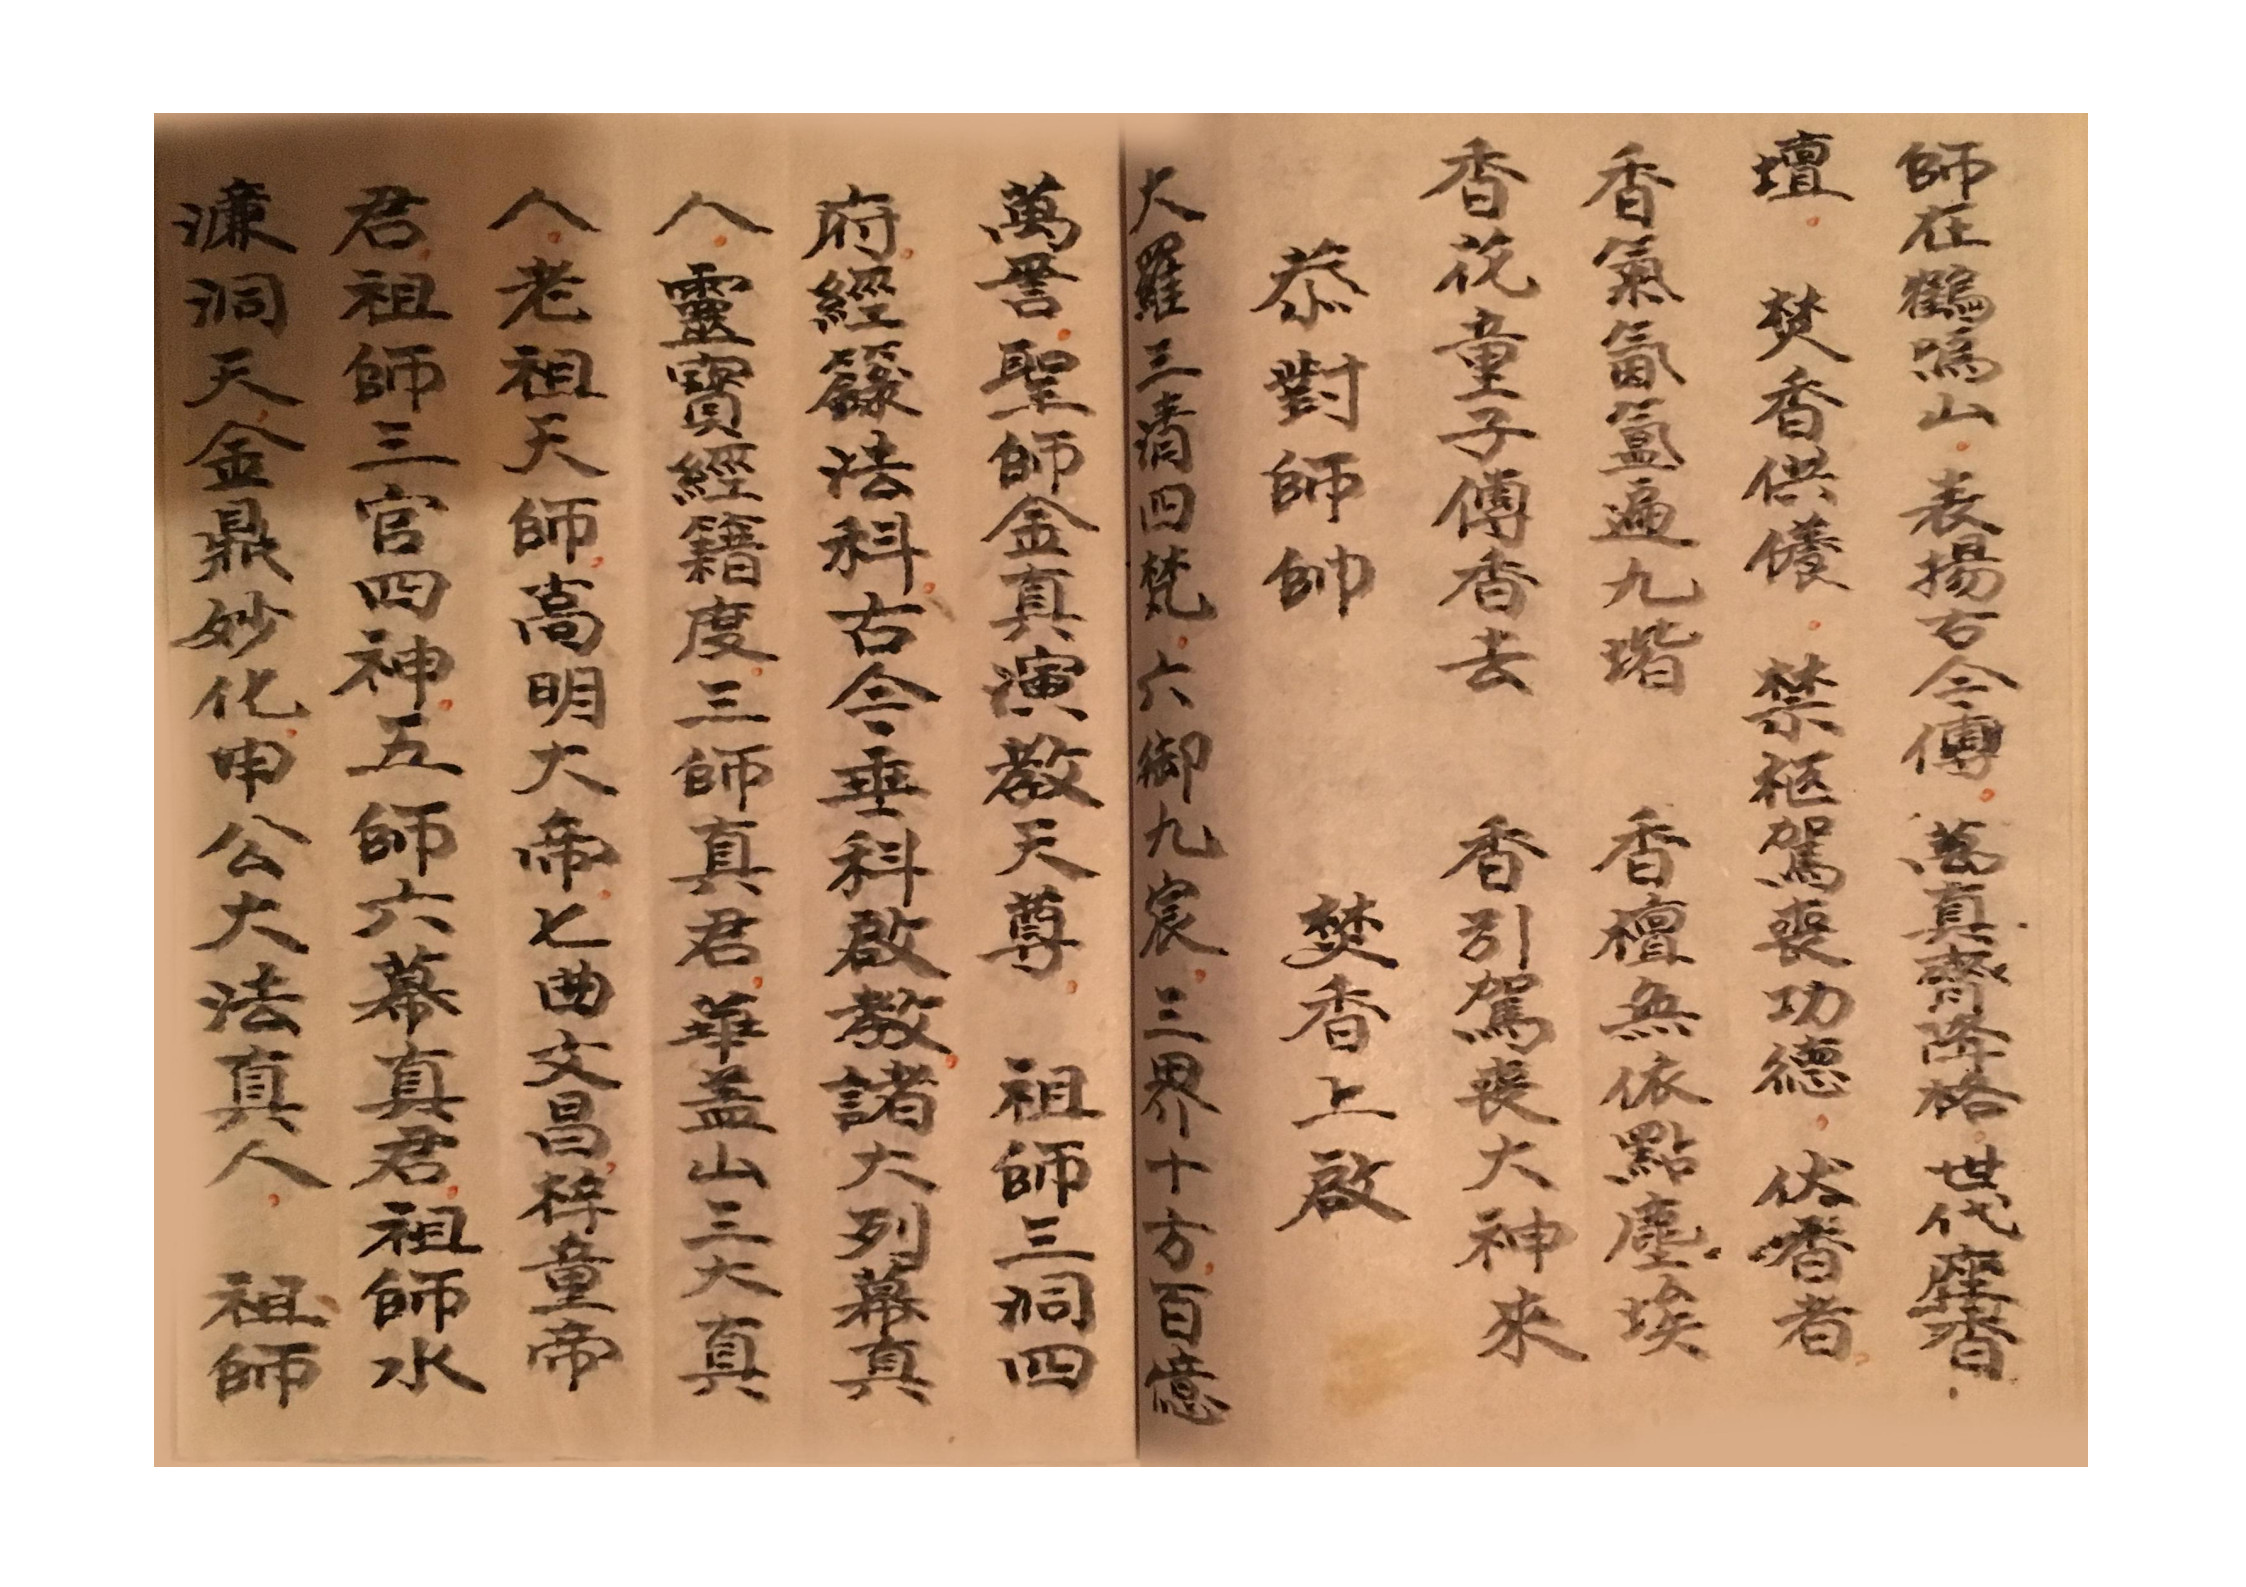 師在鶴鳴山表揚古今傳萬真齊降格世代座香
壇 焚香供養 禁柩駕喪功德 伏香者
香氣氤氳遍九階 香檀無依點塵埃
香花童子傳香去 香引駕喪大神來
恭對師帥 焚香上啟
大羅三清四梵六御九宸三界十方百億
萬冥聖師金真演教天尊 祖師三洞四
府經籙法科古今垂科啟教諸大列幕真
人靈寶經籍度三師真君華蓋山三大真
人老祖天師高明大帝七曲文昌梓童帝
君祖師三官四神五師六幕真君祖師水
濂洞天金鼎妙化申公大法真人 祖師